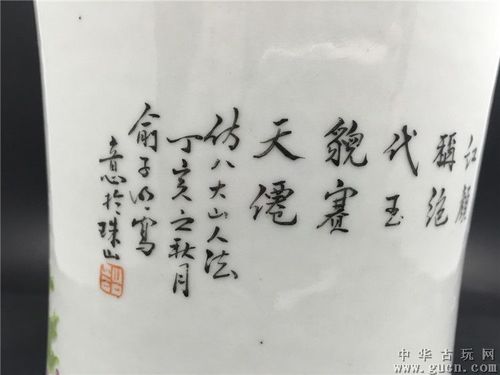 红颜
稱絕
代玉
貌賽
天僊
仿八大山人法
丁亥之秋月
俞子明寫
意於珠山
中华古玩网
www.gucn.com